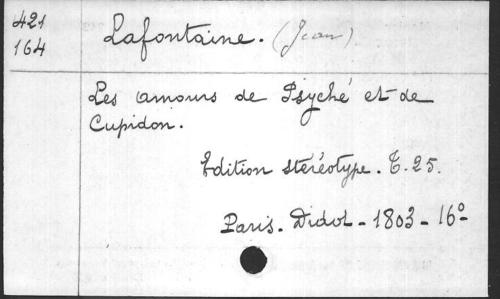 421
164
Lafontaine. (Jean)
Les amours de Psyché et de
Cupidon.
Edition stéréotype. T. 25.
Paris. Didot - 1803 - 16º